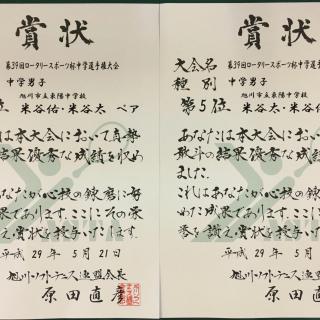 賞状
第39回ロータリースポーツ杯中学選手権大会
中学男子
旭川市立東陽中学校
位 米谷佑・米谷太 ペア
は本大会において真勢
結果優秀な成績を収め
あなたが心技の錬磨に努
果であります。ここにその栄
え賞状を授与いたします
平成 29年 5月21日
旭川ソフトテニス連盟会長
原田直彦
賞状
大会名 第39回ロータリースポーツ杯中学選手
種別 中学男子
旭川市立東陽中学校
第5位 米谷太・米谷佑
あなたは本大会において
敢斗の結果優秀な成績
ました
これはあなたが心技の錬
めた成果であります。ここに
誉を讃え賞状を授与いた
平成 29年 5月
旭川ソフトテニス連盟
原田直